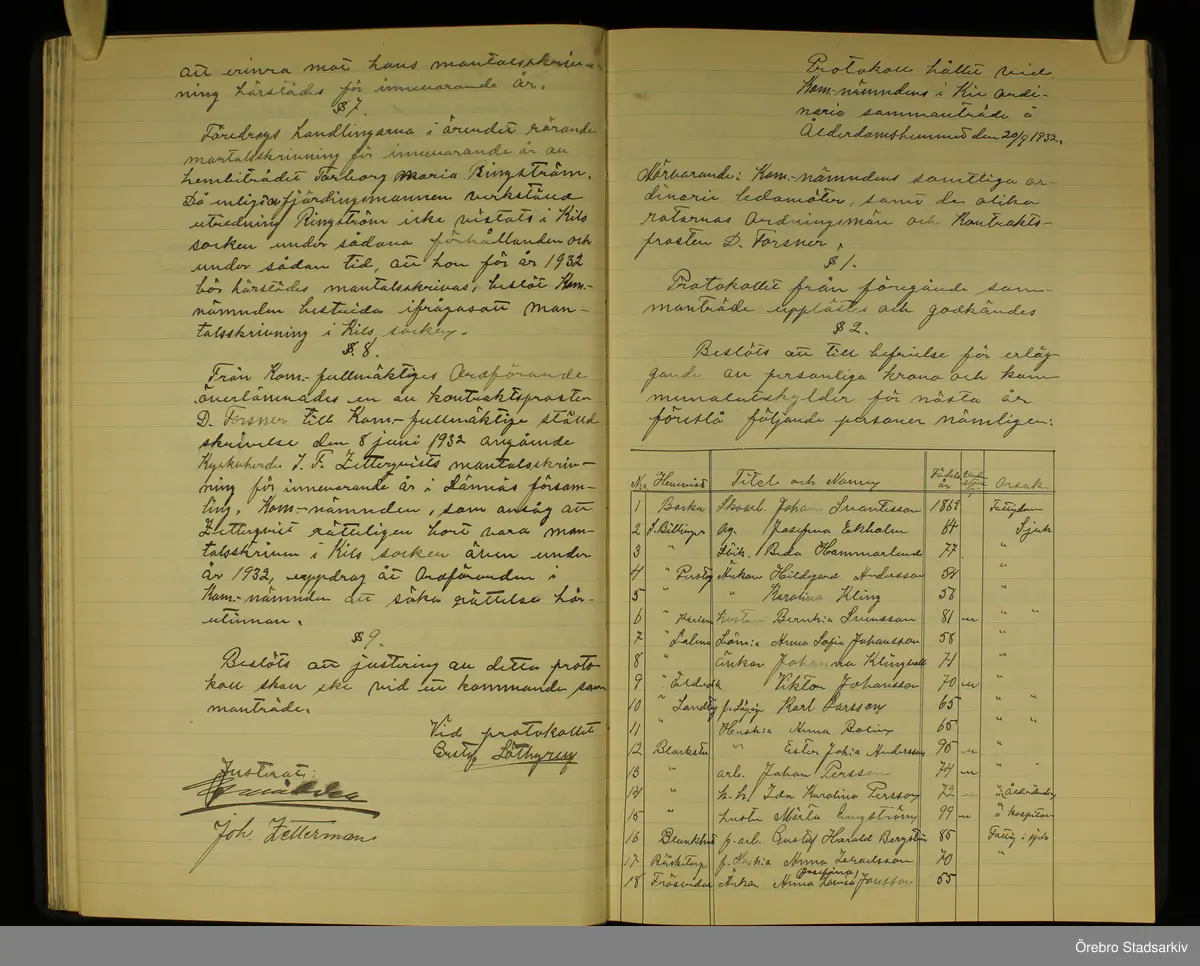 att erinra mot hans mantalsskriv-
ning härstädes för innevarande år.
§ 7.
Föredrogs handlingarna i ärendet rörande
mantalsskrivning för innevarande år av
hembiträdet Torborg Maria Ringström.
Då enligt av fjärdingsmannen verkställd
utredning Ringström icke vistats i Kils
socken under sådana förhållanden och
under sådan tid, att hon för år 1932
bör härstädes mantalsskrivas, beslöt Kom.-
nämnden bestrida ifrågasatt man-
talsskrivning i Kils socken.
§ 8.
Från Kom.-fullmäktiges Ordförande
överlämnades en av kontraktsprosten
D. Forsner till Kom.-fullmäktige ställd
skrivelse den 8 juni 1932 angående
Kyrkoherde J. F. Zetterqvists mantalsskriv-
ning för innevarande år i Lännäs försam-
ling. Kom.-nämnden, som ansåg att
Zetterqvist rätteligen bort vara man-
talsskriven i Kils socken även under
år 1932, uppdrog åt Ordföranden i
Kom.-nämnden att söka rättelse här-
utinnan.
§ 9.
Beslöts att justering av detta proto-
koll skall ske vid ett kommande sam
manträde.
Vid protokollet
Gustaf Löthgren
Justerat:
Joh Zetterman
Protokoll hållet vid
Kom.-nämndens i Kil ordi-
narie sammanträde å
Ålderdomshemmet den 20/9 1932.
Närvarande: Kom.-nämndens samtliga or-
dinarie ledamöter, samt de olika
rotarnas Ordningsmän och Kontrakts-
prosten D. Forsner.
§ 1.
Protokollet från föregånde sam-
manträde upplästes och godkändes
§ 2.
Beslöts att till befrielse för erläg-
gande av personliga krono och kom
munalutskylder för nästa år
föreslå följande personer nämligen:
N:o Hemvist Titel och Namn Födelse år Orsak
1 Borka Skoarb. Johan Svantesson 1869 Fattigdom
2 S. Billinge Josefina Ekholm 64 Sjuk
3 " Beda Hammarlund 77 "
4 " Änkan Hildegard Andersson 54 "
5 " " Karolina Kling 56 "
6 " Svensson 81 " "
7 " Anna Sofia Johansson 58 "
8 " änkan Johanna Klingvall 71 "
9 " Viktor Johansson 70 "
10 " Karl Larsson 65 " "
11 " Anna Bolin 65 " "
12 " Ester Andersson 95 "
13 " arb. Johan Persson 74 "
14 " h. h. Ida Karolina Persson 72
15 " Märta Engström 99 å hospital
16 f. arb. Gustaf Harald Bergström 85 Fattig o sjuk
17 Bäcktorp Anna Israelsson 70 "
18 Frösvidal Änkan Anna Josefina Lovisa Jonsson 55
Örebro Stadsarkiv